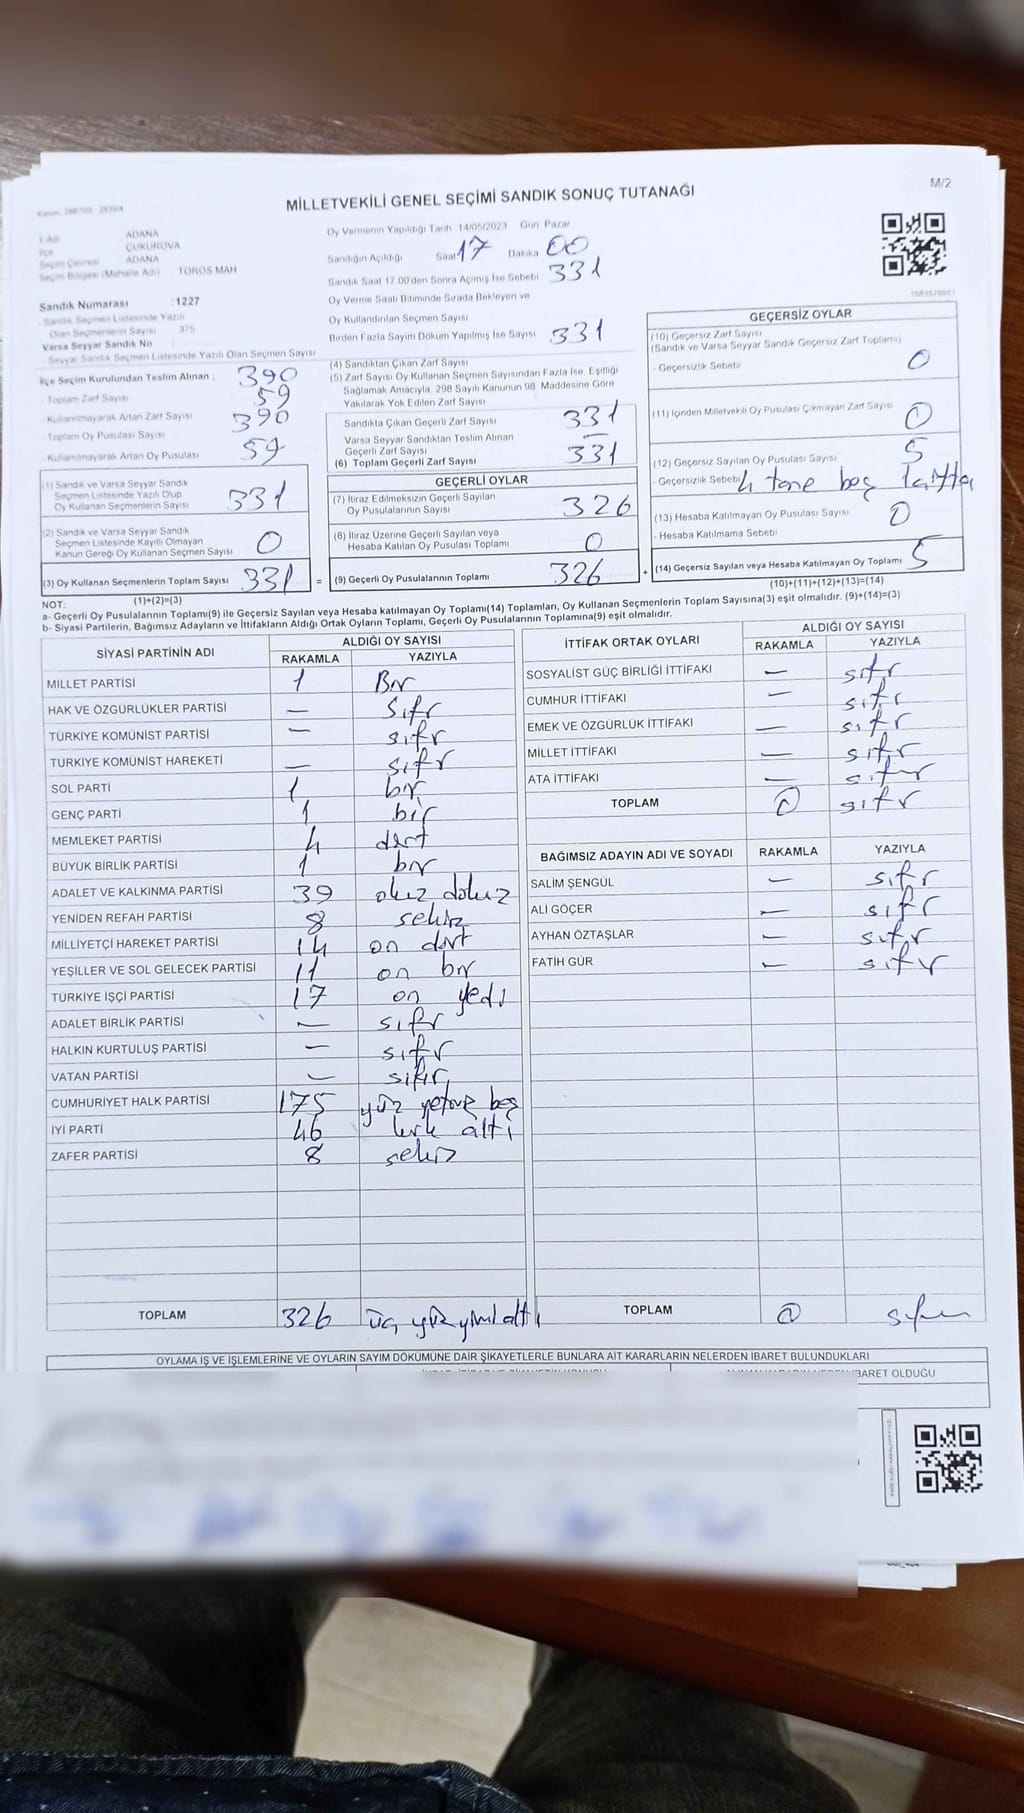 M/2
MİLLETVEKİLİ GENEL SEÇİMİ SANDIK SONUÇ TUTANAĞI
İl Adı ADANA
İlçe ÇUKUROVA
Seçim Çevresi ADANA
Seçim Bölgesi (Mahalle Adı) TOROS MAH
Sandık Numarası :1227
- Sandık Seçmen Listesinde Yazılı
Olan Seçmenlerin Sayısı 375
Varsa Seyyar Sandık No :
- Seyyar Sandık Seçmen Listesinde Yazılı Olan Seçmen Sayısı
İlçe Seçim Kurulundan Teslim Alınan :
- Toplam Zarf Sayısı 390
- Kullanılmayarak Artan Zarf Sayısı 59
- Toplam Oy Pusulası Sayısı 390
- Kullanılmayarak Artan Oy Pusulası 59
(1) Sandık ve Varsa Seyyar Sandık
Seçmen Listesinde Yazılı Olup
Oy Kullanan Seçmenlerin Sayısı 331
(2) Sandık ve Varsa Seyyar Sandık
Seçmen Listesinde Kayıtlı Olmayan
Kanun Gereği Oy Kullanan Seçmen Sayısı 0
(3) Oy Kullanan Seçmenlerin Toplam Sayısı 331 =
(1)+(2)=(3)
Oy Vermenin Yapıldığı Tarih 14/05/2023 Gün Pazar
Sandığın Açıldığı Saat 17 Dakika 00
Sandık Saat 17.00'den Sonra Açımış İse Sebebi
Oy Verme Saati Bitiminde Sırada Bekleyen ve
Oy Kullandırılan Seçmen Sayısı 331
Birden Fazla Sayım Döküm Yapılmış İse Sayısı
(4) Sandıktan Çıkan Zarf Sayısı 331
(5) Zarf Sayısı Oy Kullanan Seçmen Sayısından Fazla İse, Eşitliği
Sağlamak Amacıyla, 298 Sayılı Kanunun 98. Maddesine Göre
Yakılarak Yok Edilen Zarf Sayısı
Sandıkta Çıkan Geçerli Zarf Sayısı 331
Varsa Seyyar Sandıktan Teslim Alınan
Geçerli Zarf Sayısı —
(6) Toplam Geçerli Zarf Sayısı 331
GEÇERLİ OYLAR
(7) İtiraz Edilmeksizin Geçerli Sayılan
Oy Pusulalarının Sayısı 326
(8) İtiraz Üzerine Geçerli Sayılan veya
Hesaba Katılan Oy Pusulası Toplamı 0
(9) Geçerli Oy Pusulalarının Toplamı 326 +
GEÇERSİZ OYLAR
(10) Geçersiz Zarf Sayısı
(Sandık ve Varsa Seyyar Sandık Geçersiz Zarf Toplamı)
- Geçersizlik Sebebi 0
(11) İçinden Milletvekili Oy Pusulası Çıkmayan Zarf Sayısı 0
(12) Geçersiz Sayılan Oy Pusulası Sayısı 5
- Geçersizlik Sebebi 4 tane boş
(13) Hesaba Katılmayan Oy Pusulası Sayısı 0
- Hesaba Katılmama Sebebi
(14) Geçersiz Sayılan veya Hesaba Katılmayan Oy Toplamı 5
(10)+(11)+(12)+(13)=(14)
NOT:
a- Geçerli Oy Pusulalarının Toplamı(9) ile Geçersiz Sayılan veya Hesaba katılmayan Oy Toplamı(14) Toplamları, Oy Kullanan Seçmenlerin Toplam Sayısına(3) eşit olmalıdır. (9)+(14)=(3)
b- Siyasi Partilerin, Bağımsız Adayların ve İttifakların Aldığı Ortak Oyların Toplamı, Geçerli Oy Pusulalarının Toplamına(9) eşit olmalıdır.
SİYASİ PARTİNİN ADI ALDIĞI OY SAYISI
RAKAMLA YAZIYLA
MİLLET PARTİSİ 1 Bir
HAK VE ÖZGÜRLÜKLER PARTİSİ — sıfır
TÜRKİYE KOMÜNİST PARTİSİ — sıfır
TÜRKİYE KOMÜNİST HAREKETİ — sıfır
SOL PARTİ 1 bir
GENÇ PARTİ 1 bir
MEMLEKET PARTİSİ 4 dört
BÜYÜK BİRLİK PARTİSİ 1 bir
ADALET VE KALKINMA PARTİSİ 39 otuz dokuz
YENİDEN REFAH PARTİSİ 8 sekiz
MİLLİYETÇİ HAREKET PARTİSİ 14 on dört
YEŞİLLER VE SOL GELECEK PARTİSİ 11 on bir
TÜRKİYE İŞÇİ PARTİSİ 17 on yedi
ADALET BİRLİK PARTİSİ — sıfır
HALKIN KURTULUŞ PARTİSİ — sıfır
VATAN PARTİSİ — sıfır
CUMHURİYET HALK PARTİSİ 175 yüz yetmiş beş
İYİ PARTİ 46 kırk altı
ZAFER PARTİSİ 8 sekiz
TOPLAM 326 üç yüz yirmi altı
İTTİFAK ORTAK OYLARI ALDIĞI OY SAYISI
RAKAMLA YAZIYLA
SOSYALİST GÜÇ BİRLİĞİ İTTİFAKI — sıfır
CUMHUR İTTİFAKI — sıfır
EMEK VE ÖZGÜRLÜK İTTİFAKI — sıfır
MİLLET İTTİFAKI — sıfır
ATA İTTİFAKI — sıfır
TOPLAM 0 sıfır
BAĞIMSIZ ADAYIN ADI VE SOYADI RAKAMLA YAZIYLA
SALİM ŞENGÜL — sıfır
ALİ GÖÇER — sıfır
AYHAN ÖZTAŞLAR — sıfır
FATİH GÜR — sıfır
TOPLAM 0 sıfır
OYLAMA İŞ VE İŞLEMLERİNE VE OYLARIN SAYIM DÖKÜMÜNE DAİR ŞİKAYETLERLE BUNLARA AİT KARARLARIN NELERDEN İBARET BULUNDUKLARI
İBARET OLDUĞU